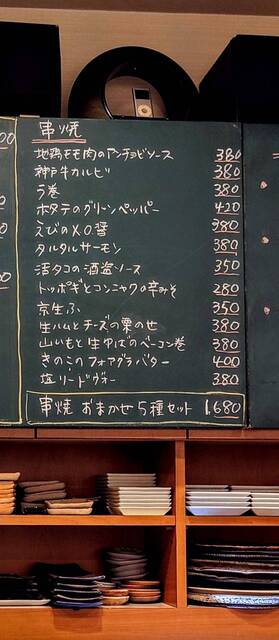 串焼
地鶏モモ肉のアンチョビソース 380
神戸牛カルビ 380
う巻 380
ホタテのグリーンペッパー 420
えびのXO醤 380
タルタルサーモン 380
活タコの酒盗ソース 350
トッポギとコンニャクの辛みそ 280
京生ふ 350
生ハムとチーズの栗のせ 380
山いもと生ゆばのベーコン巻 380
きのこのフォアグラバター 400
塩リードヴォー 380
串焼 おまかせ5種セット 1,680